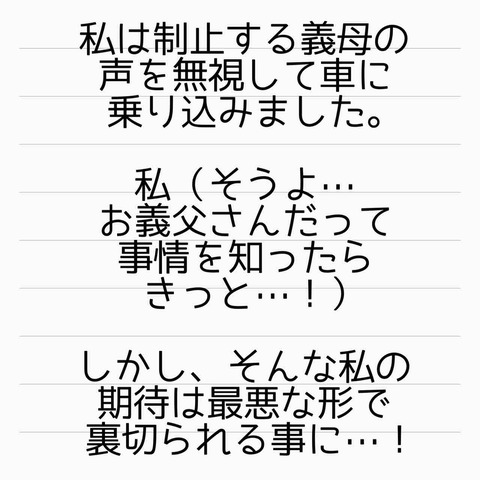 私は制止する義母の
声を無視して車に
乗り込みました。
私（そうよ…
お義父さんだって
事情を知ったら
きっと…！）
しかし、そんな私の
期待は最悪な形で
裏切られる事に…！